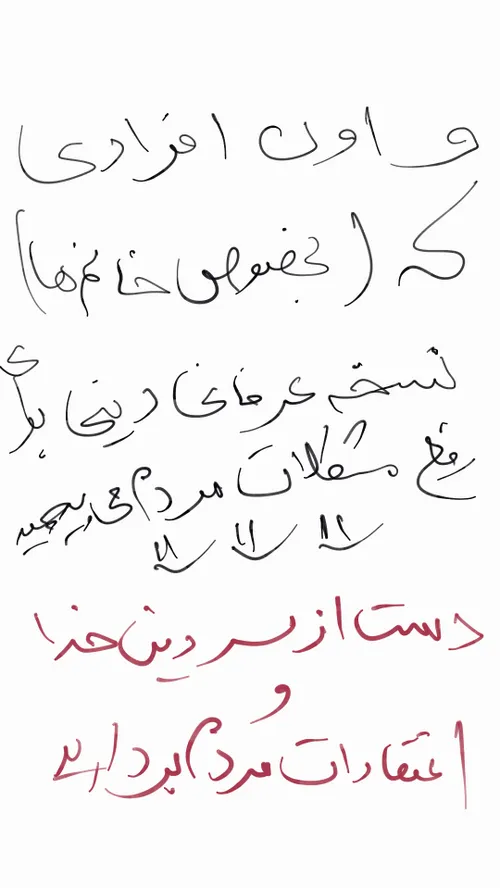 و اون افرادی
که (بخصوص خانم‌ها)
نسخه عرفانی دینی برای
رفع مشکلات مردم می‌پیچید
دست از سر دین خدا
و
اعتقادات مردم بردارید